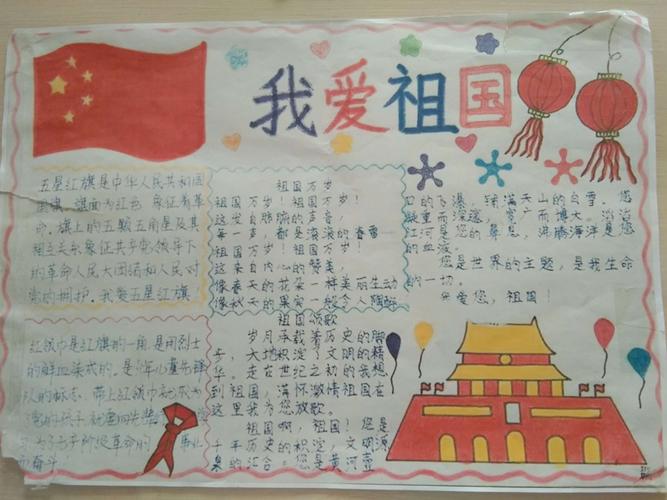 我爱祖国
五星红旗是中华人民共和国
国旗。旗面为红色,象征着革
命。旗上的五颗五角星及其
相互关系象征共产党领导下
的革命人民大团结和人民对
党的拥护。我爱五星红旗
红领巾是红旗的一角,是用烈士
的鲜血染成的。是少年儿童先锋
队的标志。带上红领巾就成为
党的孩子
为了
革命的
而奋斗
祖国万岁
祖国万岁!祖国万岁!
这发自肺腑的声音,
每一声,都是滚滚的春雷
祖国万岁!祖国万岁!
这来自内心的赞美,
像春天的花朵一样美丽生动
像秋天的果实一般令人陶醉
祖国颂歌
岁月承载着历史的脚
步,大地积淀了文明的精
华。走在世纪之初的我想
到祖国,满怀激情祖国在
这里我为您放歌。
祖国啊,祖国!您是
千年历史的积淀,文明源
泉的汇合。您是黄河壶
口的飞瀑,铺满天山的白雪。您
凝重而深邃,宽广而博大。滔滔
江河是您的鼻息,沸腾海洋是您
的血液。
您是世界的主题,是我生命
的一切。
我爱您,祖国!